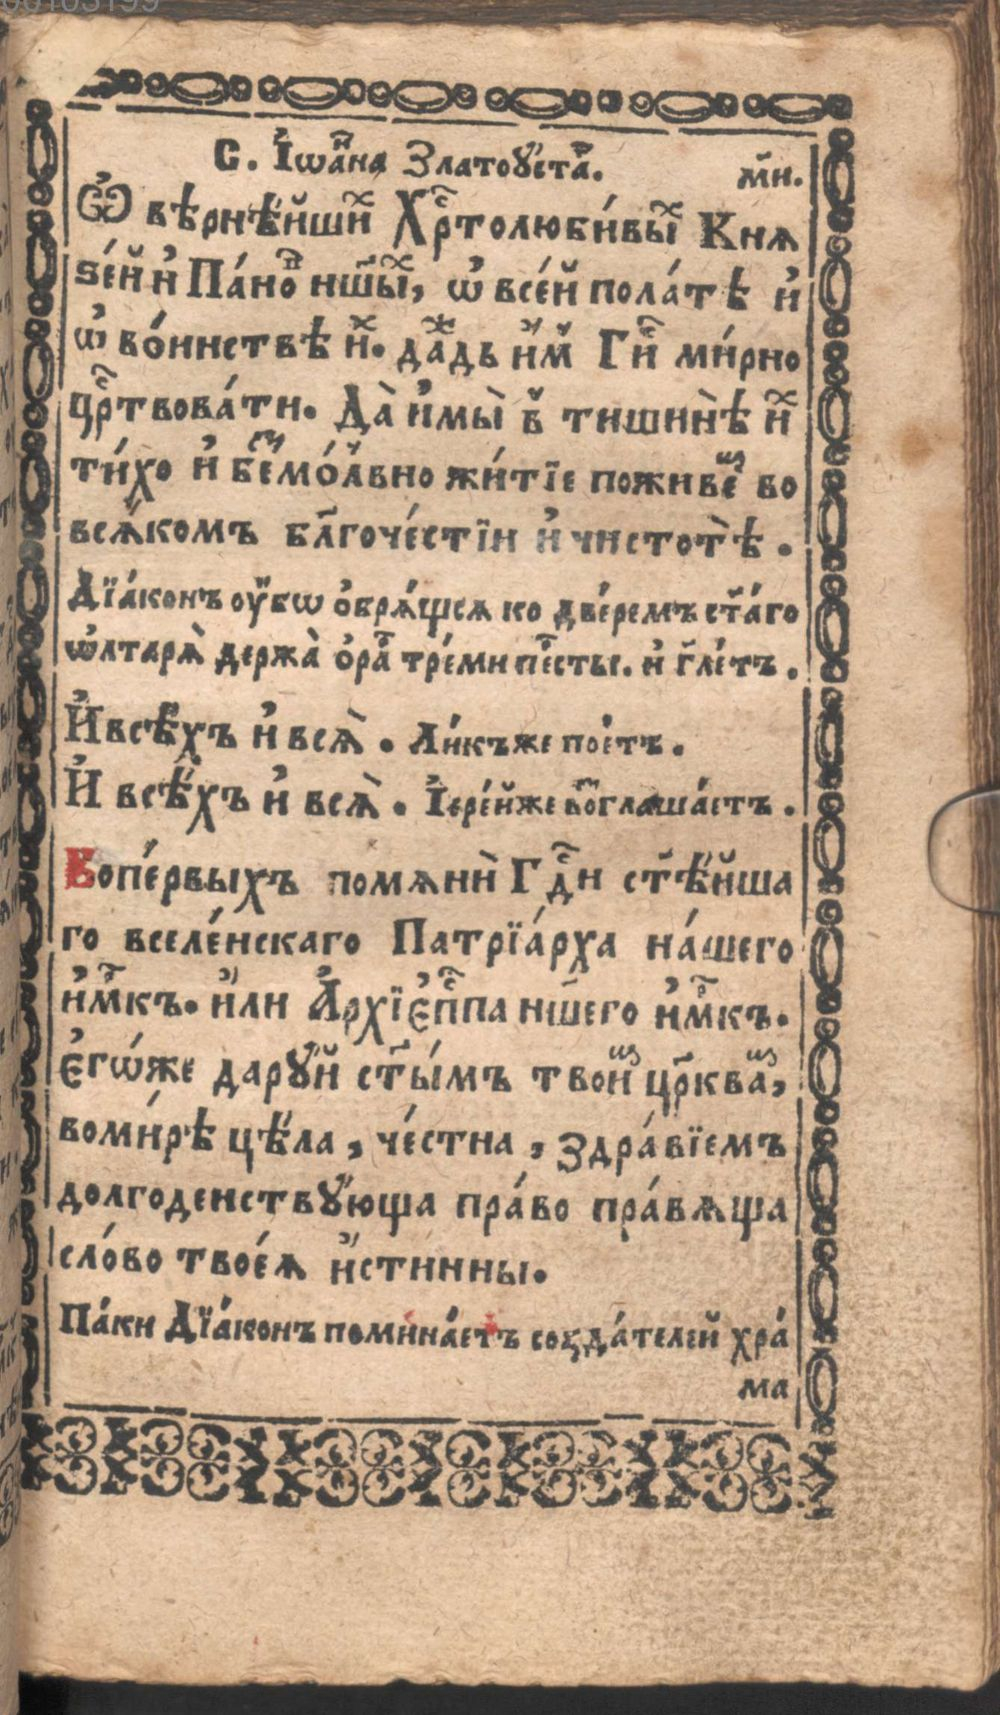 00103199
С. І҆ѡа́нⷩа Златоꙋ́стⷭа. м҃и.
Ѡ҆ вѣрнѣ́йшиⷯ Хрⷭ҇толюби́выⷯ Кнѧ
ѕе́й и҆ Па́ноⷡ нш҃иⷯ, ѡ҆ все́й пола́тѣ и҆
ѡ҆ во́инствѣ и҆ⷯ. даⷤдь и҆̀мъ Гиⷭ҇ ми́рно
црⷭ҇твова́ти. Да̀ и҆мы̀ в̾ тишинѣ̀ и҆ⷯ
ти́хо и҆ беⷥмо́лвно жи́тїе поживеⷨ во
всѧ́комъ бл҃гоче́стїи и҆ чистотѣ̀.
Дїа́конъ оу҆́бѡ ѡ҆брѧ́щсѧ ко две́ремъ ст҃а́го
ѡ҆лтарѧ̀ держа̀ ѡ҆ра́ⷬ тре́ми пеⷬ҇сты. и҆ гл҃етъ.
И҆ всѣ́хъ и҆ всѧ̀. Ли́къже пое́тъ.
И҆ всѣ́хъ и҆ всѧ̀. І҆ере́йже воⷥглаша́етъ.
Вопе́рвыхъ помѧнѝ Гдⷭ҇и ст҃ѣ́йша
го вселе́нскаго Патрїа́рха на́шего
и҆мⷬ҇къ. и҆̀ли А҆рхїе҆пⷭ҇па нш҃его и҆мⷬ҇къ.
є҆гѡ́же дарꙋ́й ст҃ы́мъ твоиⷨ цр҃кваⷨ,
воми́рѣ цѣ́ла, че́стна, здра́вїемъ
долгоденствꙋ́юща пра́во пра́вѧща
сло́во твоеѧ̀ и҆́стинны.
Па́ки Дїа́конъ помина́етъ созда́телей хра́
ма